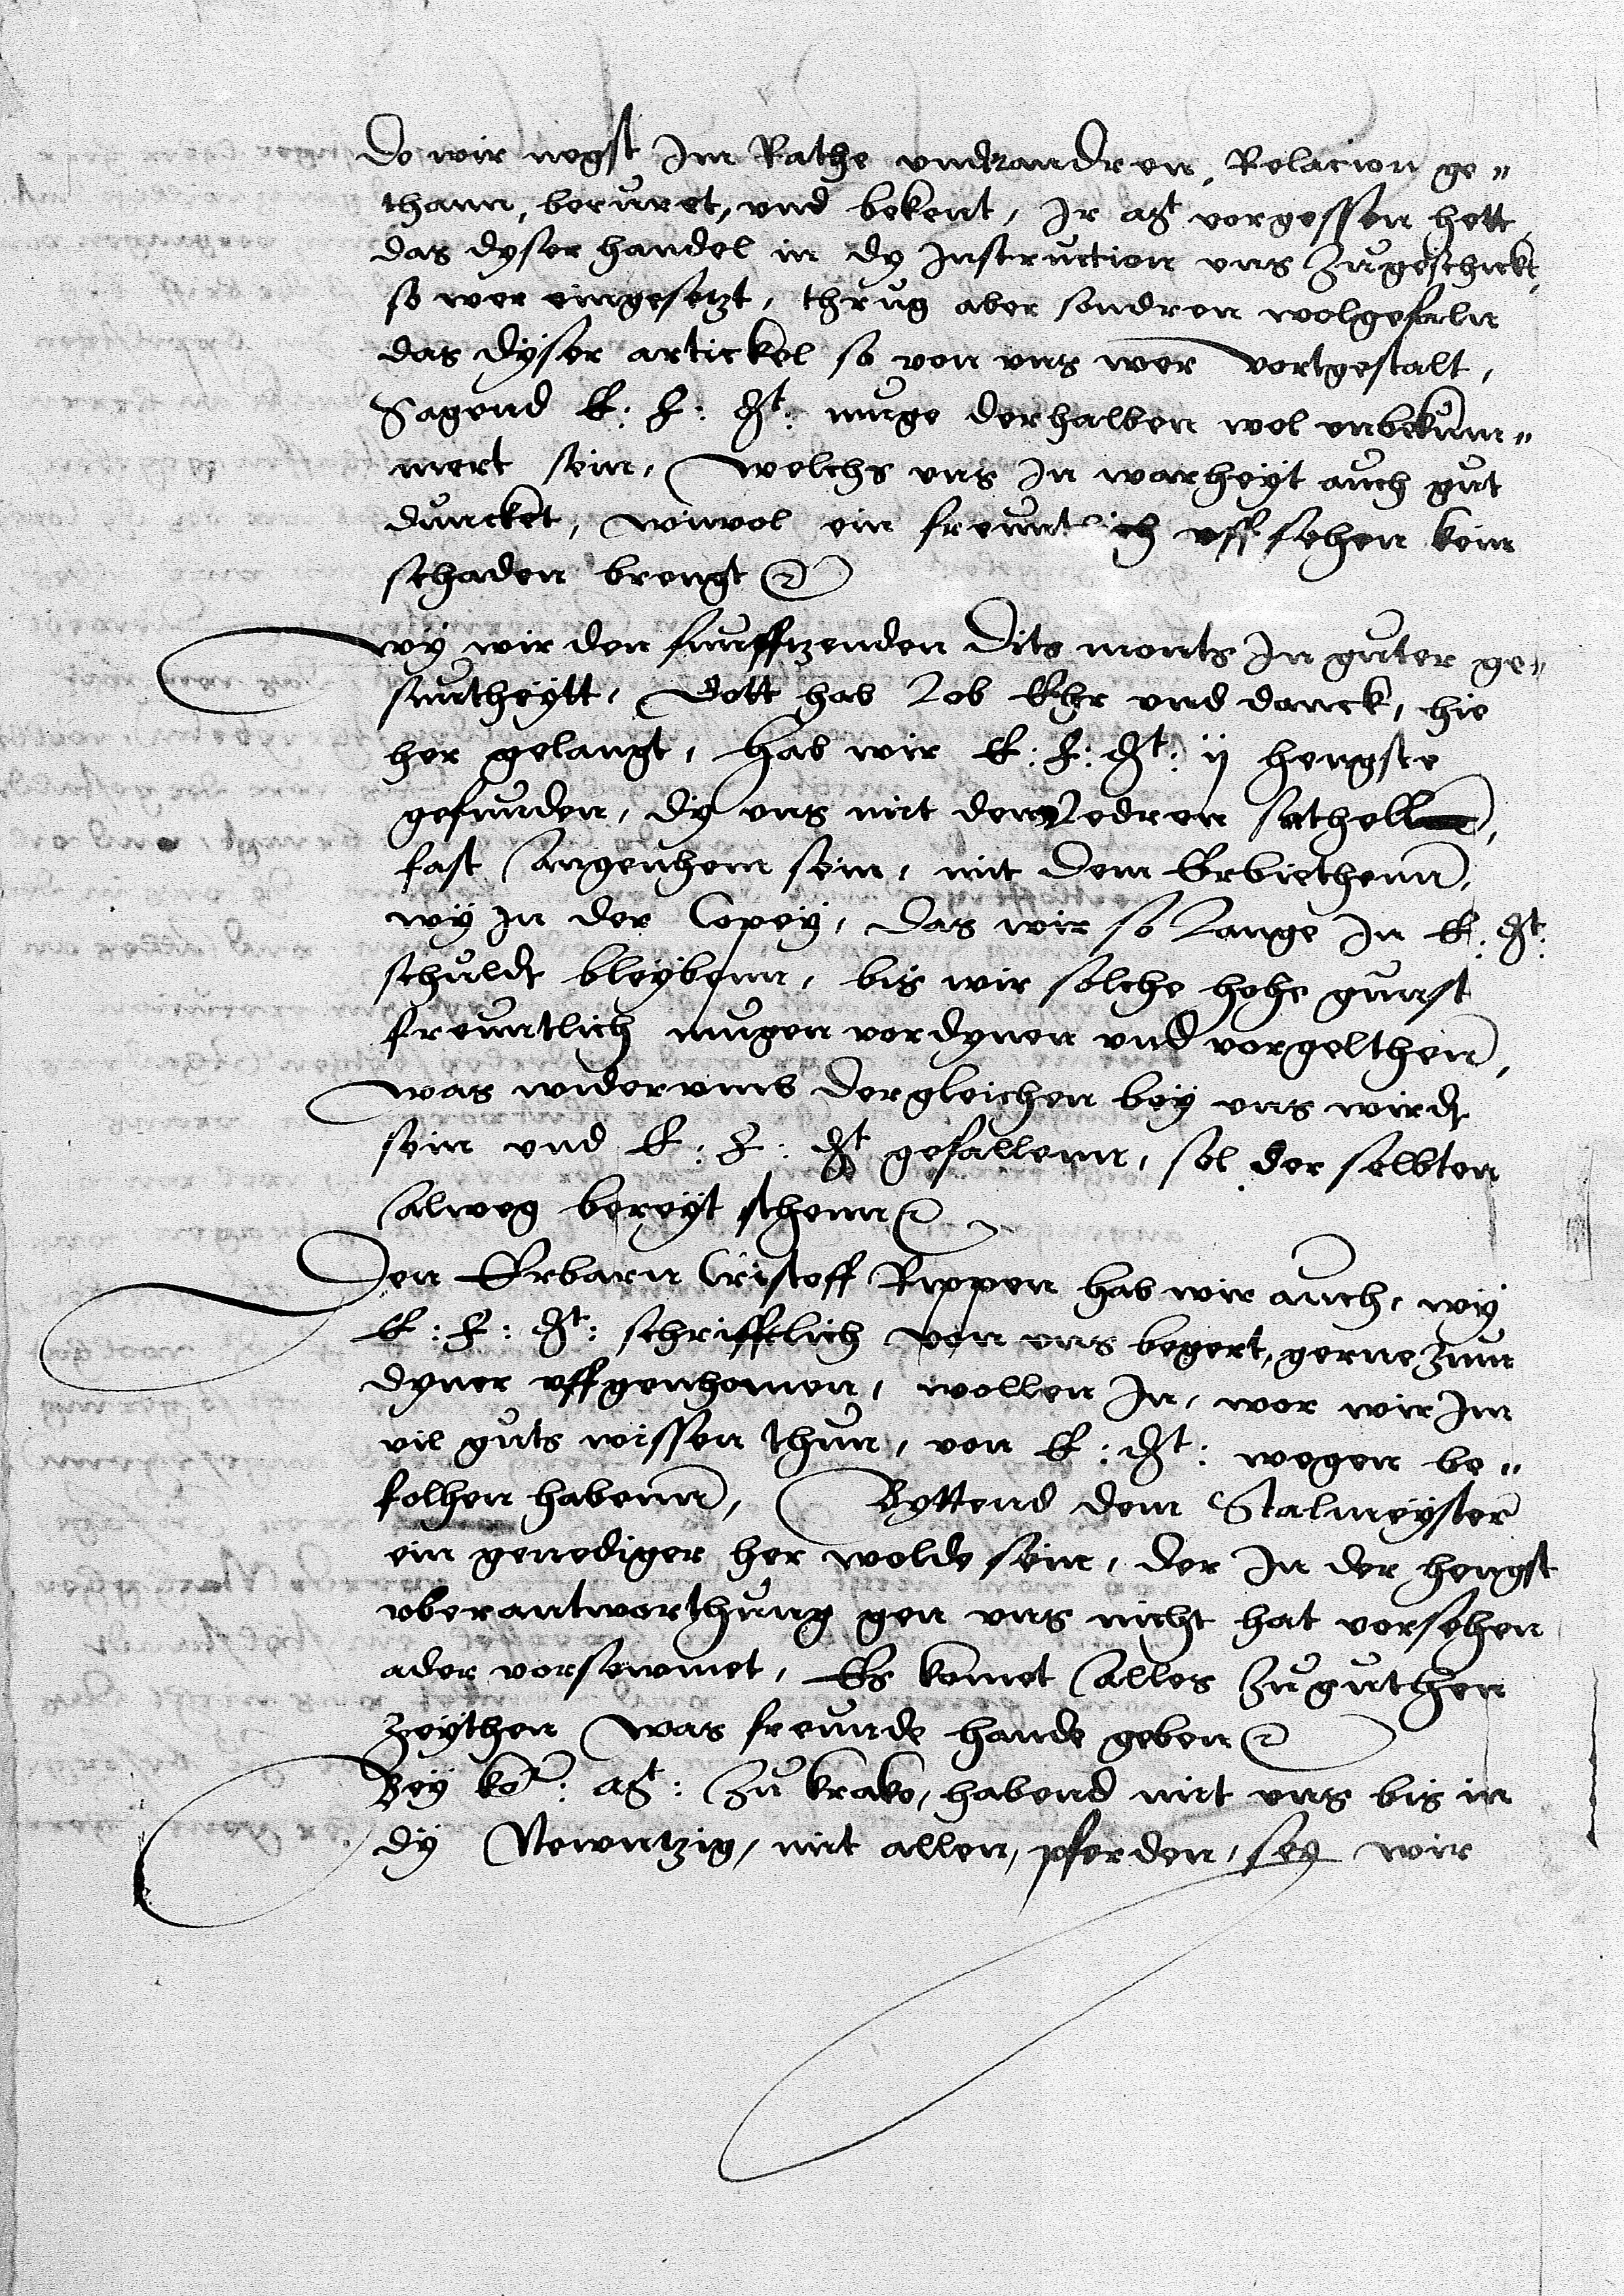 Do wir negst Im Rathe undt andren, Relacion ge=
thann, beruret, und bekent, Ir mt vorgessen hett,
das dyser handel in dy Instruction uns zugeschickt,
so wer eingesetzt, thrug aber sondren wolgefaln
das dyser artickel so von uns wer vortgestalt,
Sagend E: F: gt: muge derhalben wol unbekum=
mert sein, welchs uns In warheyt auch gut
duncket, wiwol ein freuntlich uff sehen kein
schaden brengt etc
Wy wir den funfftzenden Dits monts In guter ge=
suntheytt, Gott hab Lob Ehr und danck, hie
her gelangt, hab wir E: F: gt: ij hengste
gefunden, dy uns mit den Ledren sathell,
fast angenhem sein, mit dem Erbiethenn,
wy In der Copey, das wir so Lange In E: gt:
schuldt bleybenn, bis wir solche hohe gunst
freuntlich mugen vordynen und vorgelthen,
was widerumb dergleichen bey uns wirdt
sein und E: F: gt gefallenn, sol der selbten
alweg bereyt sthenn etc
Den Erbarn Cristoff Rippen hab wir auch, wy
E: F: gt: schrifftlich von uns begert, gerne zum
dyner uffgenhomen, wollen In, wor wir Im
vil guts wissen thun, von E: gt: wegen be=
folhen habenn, Byttend dem Stalmeyster
ein genediger her wolde sein, der In der hengst
uberantworthung gen uns nicht hat vorsehen
ader vorsewmet, Es komet alles zu guthen
zeythen was freunde hande geben etc
Bey ko: mt: zu krako, habend mit uns bis in
dy Newntzig, mit allen, pferden, sey wir